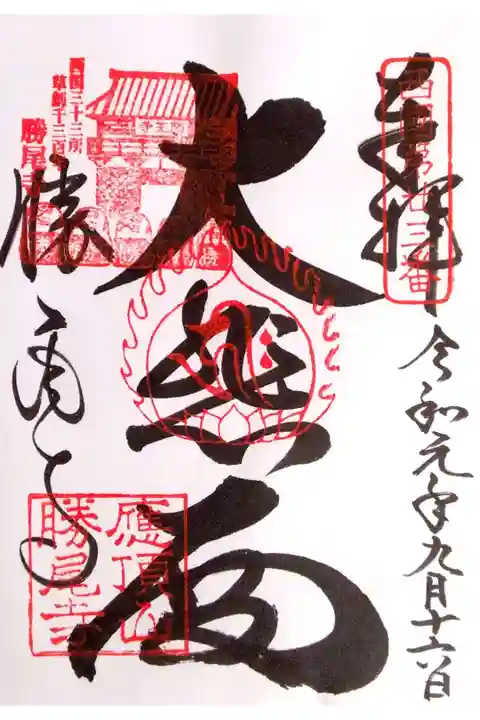 奉拝
西国第廿三番
令和元年九月十六日
大悲殿
西国三十三所
草創千三百年
勝尾寺
勝尾寺
應頂山
勝尾寺